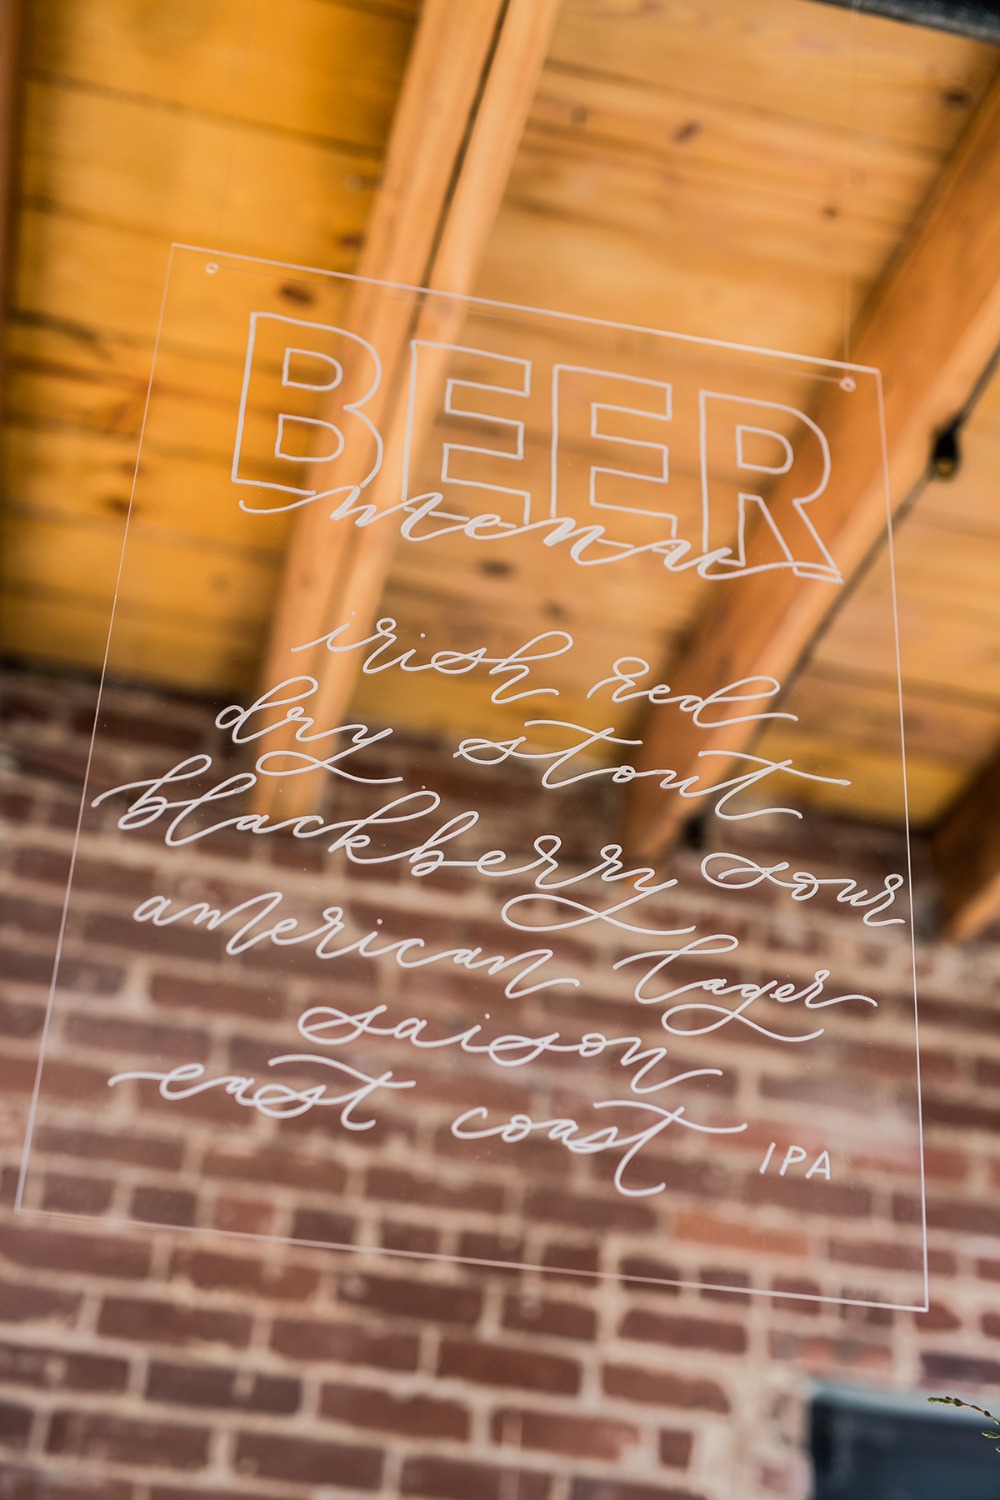 BEER
menu
irish red
dry stout
blackberry sour
american lager
saison
east coast IPA